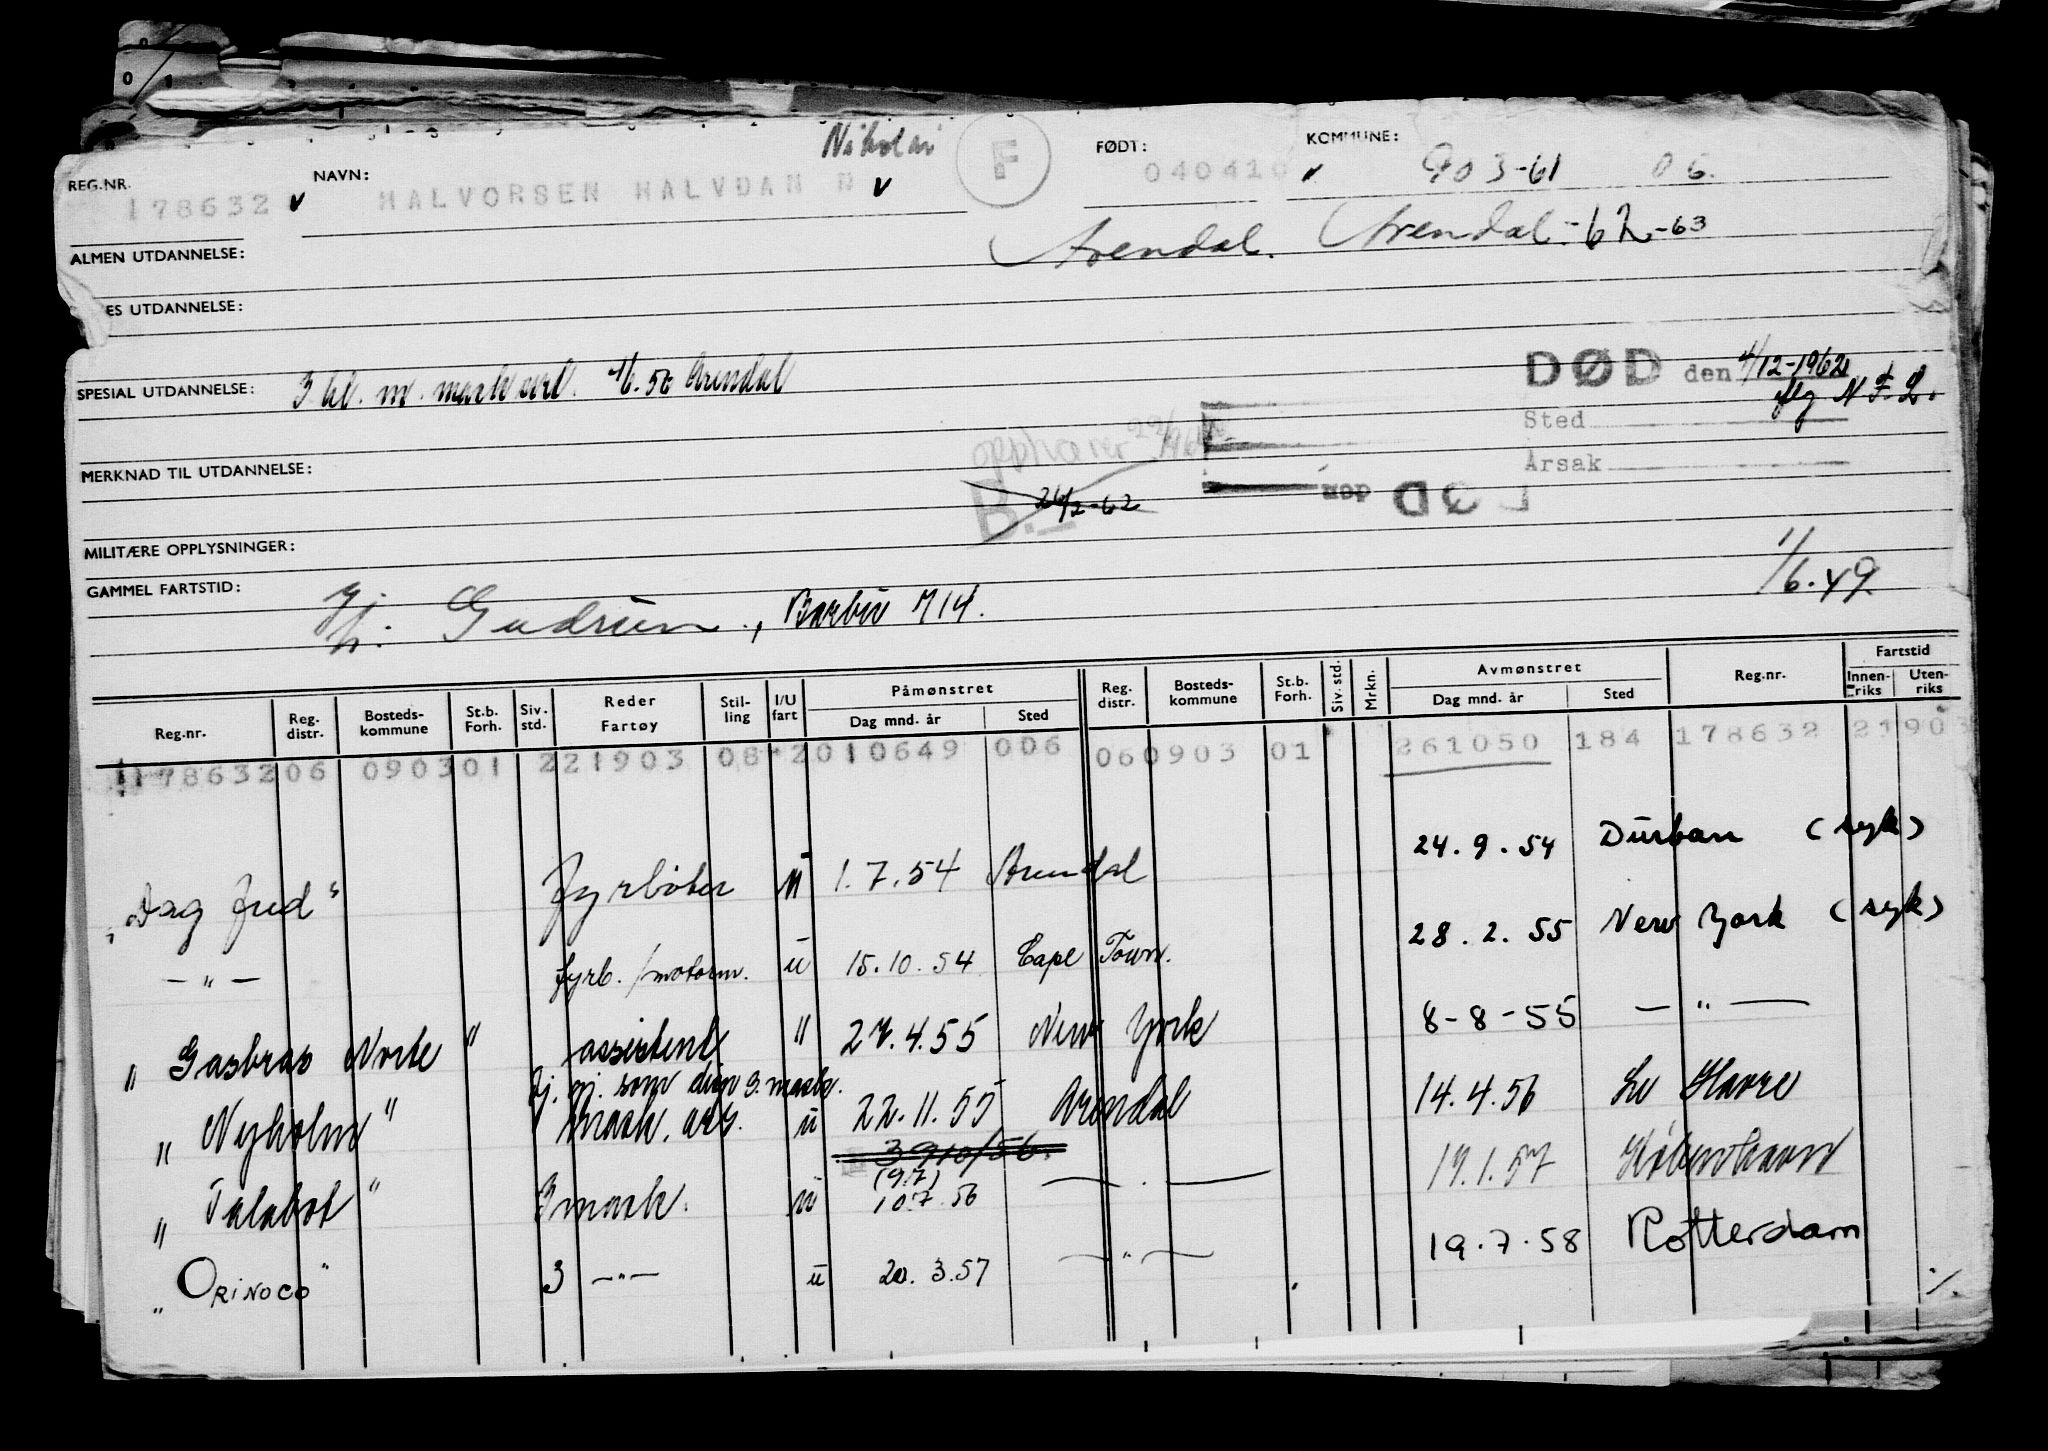 Nikolai
REG.NR. 178632 v NAVN: HALVORSEN HALVDAN N v F FØDT: 040410 v KOMMUNE: 903-61 06.
ALMEN UTDANNELSE: Arendal. Arendal.-62-63
ES UTDANNELSE:
SPESIAL UTDANNELSE: 3 kl. m. mask sert. 4/6.56 Arendal
DØD den 4/12-1962
flg N.F.L.
Sted
Årsak
MERKNAD TIL UTDANNELSE:
opphører
B.- 26/2-62
den
MILITÆRE OPPLYSNINGER:
GAMMEL FARTSTID: 1/6.49.
Hj. Gudrun., Barbu 714.
Reg.nr. Reg. distr. Bosteds- kommune St.b. Forh. Siv. std. Reder Fartøy Stil- ling I/U fart Påmønstret Dag mnd. år Sted Reg. distr. Bosteds- kommune St.b. Forh. Siv. std. Mrkn. Avmønstret Dag mnd. år Sted Reg.nr. Fartstid Innen- riks Uten- riks
178632 06 0903 01 221903 08 2 010649 006 06 0903 01 261050 184 178632 21903
"Dag Fred" Fyrbøter u 1.7.54 Arendal 24.9.54 Durban (syk)
— " — fyrb./motorm. u 15.10.54 Cape Town. 28.2.55 New York (syk)
" Gasbras Norte " assistent " 27.4.55 New York 8-8-55 — " —
Hj. gj. som disp 3. mask.
" Nyholm " mask. ass. u 22.11.55 Arendal 14.4.56 Le Havre
" Talabot " 3 mask. u (9.7) 10.7.56 — . — 19.1.57 København
" ORINOCO " 3 —"— u 20.3.57 — " — 19.7.58 Rotterdam
·/.